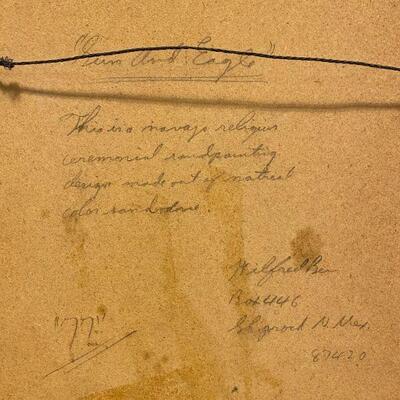 "Sun And Eagle"
This is a navajo religious
ceremonial sandpainting
design made out of natreal
color sandstone.
Wilfred Ben
Box 446
Shiprock N. Mex.
87420